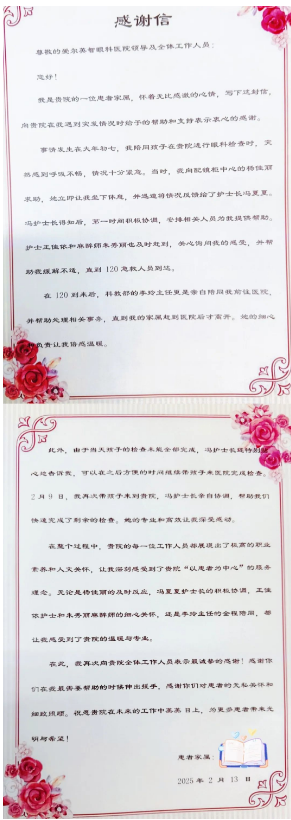 感谢信
尊敬的爱尔美智眼科医院领导及全体工作人员:
您好!
我是贵院的一位患者家属,怀着无比感激的心情,写下这封信,
向贵院在我遇到突发情况时给予的帮助和支持表示衷心的感谢。
事情发生在大年初七,我陪同孩子在贵院进行眼科检查时,突
然感到呼吸不畅,情况十分紧急。当时,我向配镜柜中心的杨佳丽
求助,她立即让我坐下休息,并迅速将情况反馈给了护士长冯夏夏。
冯护士长得知后,第一时间积极协调,安排相关人员为我提供帮助。
护士王佳依和麻醉师朱秀丽也及时赶到,关心询问我的感受,并帮
助我缓解不适,直到 120 急救人员到达。
在 120 到来后,科教部的李玲主任更是亲自陪同我前往医院,
并帮助处理相关事务,直到我的家属赶到医院后才离开。她的细心
负责让我倍感温暖。
此外,由于当天孩子的检查未能全部完成,冯护士长还特别
心地告诉我,可以在之后方便的时间继续带孩子来医院完成检查。
2 月 9 日,我再次带孩子来到贵院,冯护士长亲自协调,帮助我们
快速完成了剩余的检查。她的专业和高效让我深受感动。
在整个过程中,贵院的每一位工作人员都展现出了极高的职业
素养和人文关怀,让我深刻感受到了贵院“以患者为中心”的服务
理念。无论是杨佳丽的及时反应,冯夏夏护士长的积极协调,王佳
依护士和朱秀丽麻醉师的细心关怀,还是李玲主任的全程陪同,都
让我感受到了贵院的温暖与专业。
在此,我再次向贵院全体工作人员表示最诚挚的感谢!感谢你
们在我最需要帮助的时候伸出援手,感谢你们对患者的无私关怀和
细致照顾。祝愿贵院在未来的工作中蒸蒸日上,为更多患者带来光
明与希望!
患者家属:
2025 年 2 月 13 日